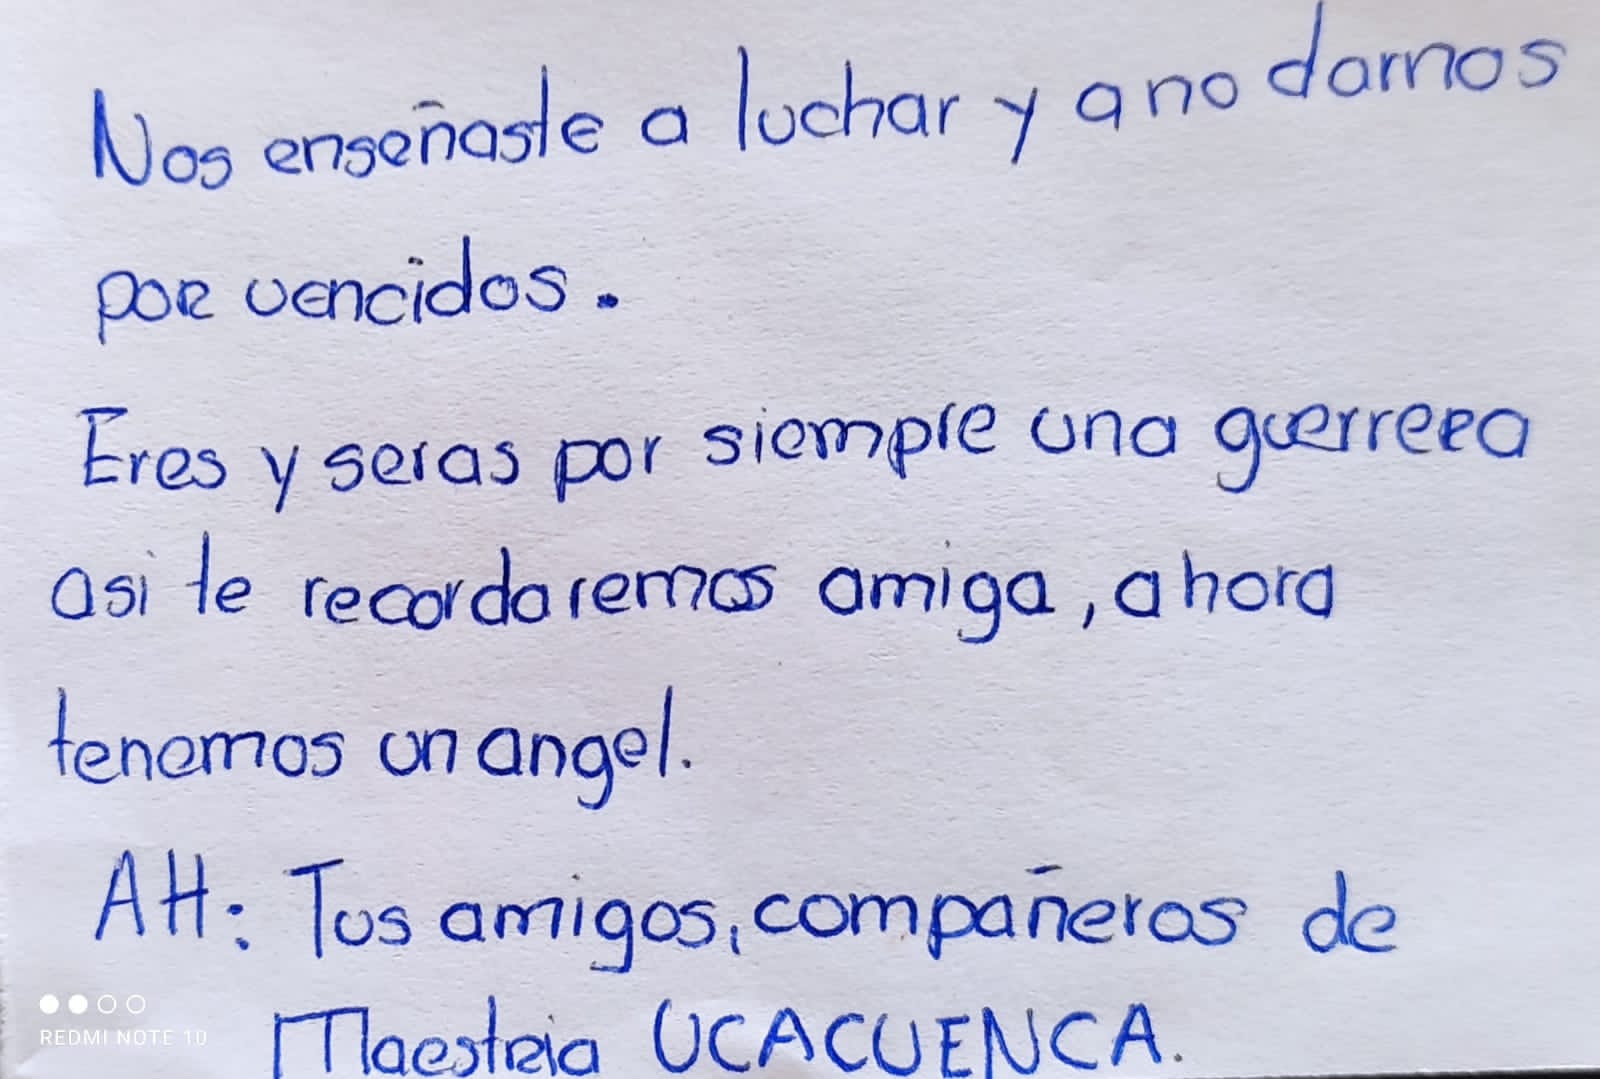 Nos enseñaste a luchar y a no darnos
por vencidos.
Eres y seras por siempre una guerrera
asi te recordaremos amiga, ahora
tenemos un angel.
Att: Tus amigos, compañeros de
Maestria UCACUENCA.
REDMI NOTE 10